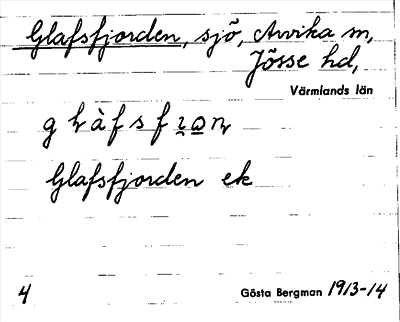 Glafsfjorden, sjö, Arvika m,
Jösse hd,
Värmlands län
Glafsfjorden ek
4 Gösta Bergman 1913-14